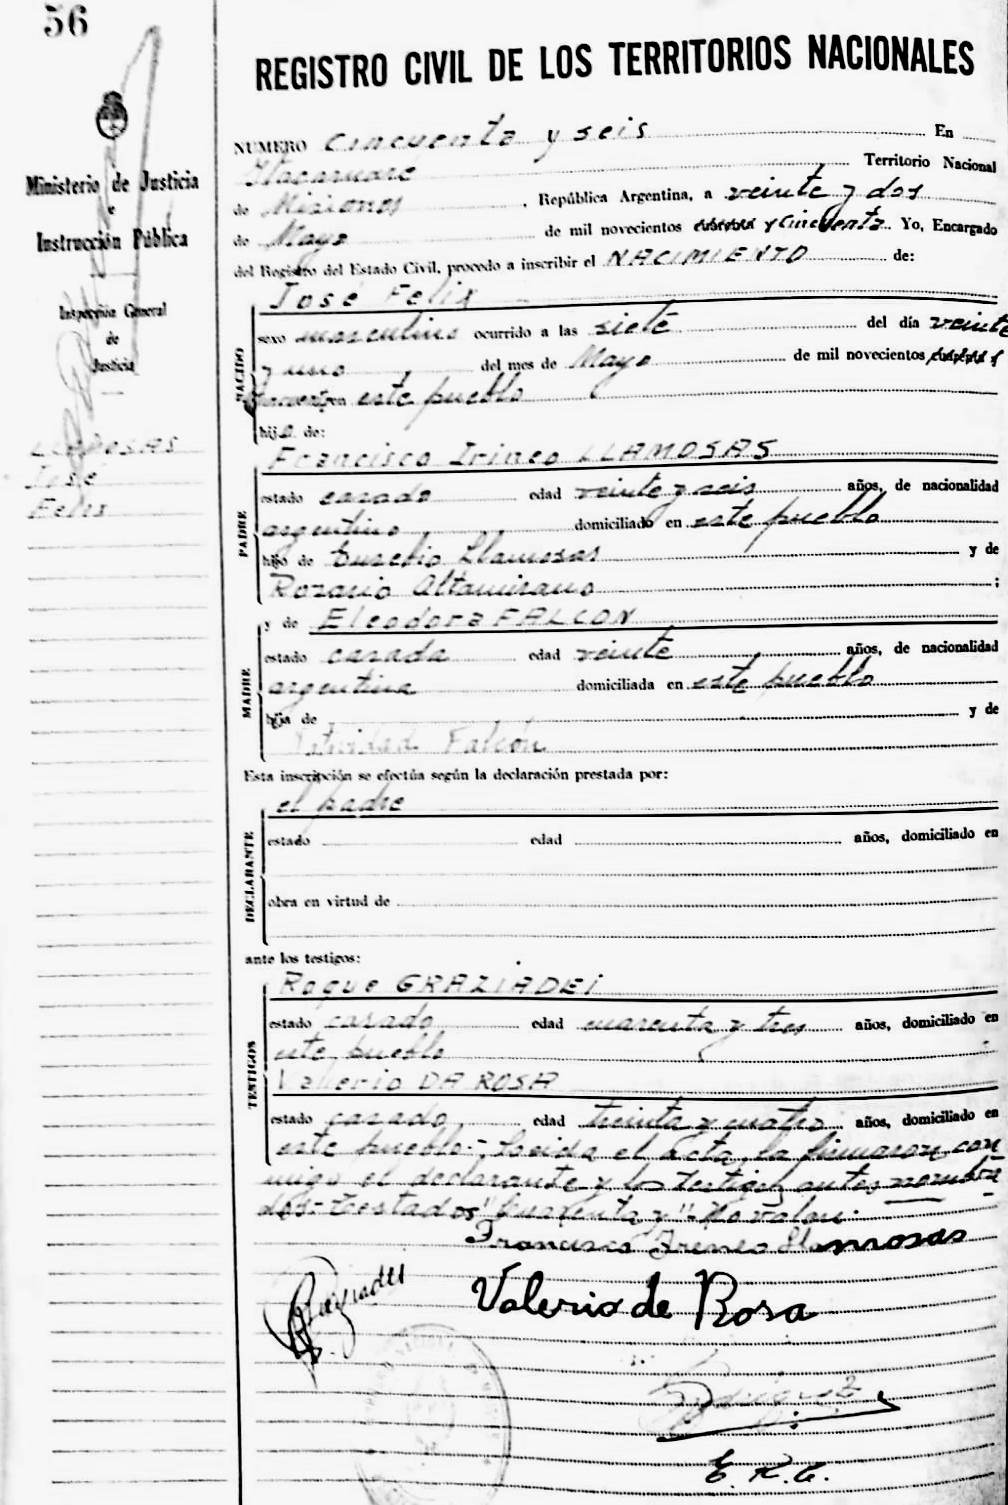 56
REGISTRO CIVIL DE LOS TERRITORIOS NACIONALES
Ministerio de Justicia
e
Instrucción Pública
Inspección General
de
Justicia
LLAMOSAS
José
Felix
NUMERO cincuenta y seis En
Itacaruaré Territorio Nacional
de Misiones, República Argentina, a veinte y dos
de Mayo de mil novecientos cuarenta y cincuenta. Yo, Encargado
del Registro del Estado Civil, procedo a inscribir el NACIMIENTO de:
NACIDO
José Felix
sexo masculino ocurrido a las siete del día veinte
y uno del mes de Mayo de mil novecientos cuarenta y
cincuenta en este pueblo
hijo de:
PADRE
Francisco Irineo LLAMOSAS
estado casado edad veinte y seis años, de nacionalidad
argentino domiciliado en este pueblo
hijo de Eusebio Llamosas y de
Rosario Altamirano ;
MADRE
y de Eleodora FALCON
estado casada edad veinte años, de nacionalidad
argentina domiciliada en este pueblo
hija de y de
Natividad Falcón
Esta inscripción se efectúa según la declaración prestada por:
DECLARANTE
el padre
estado edad años, domiciliado en
obra en virtud de
ante los testigos:
TESTIGOS
Roque GRAZIADEI
estado casado edad cuarenta y tres años, domiciliado en
este pueblo
Valerio DA ROSA
estado casado edad treinta y cuatro años, domiciliado en
este pueblo.-; Leida el acta, la firmaron con
migo el declarante y los testigos antes nombra
dos-testados "cuarenta y"-No valen.
Francisco Ireneo Llamosas
Valerio de Rosa
Rodriguez
E. R. C.